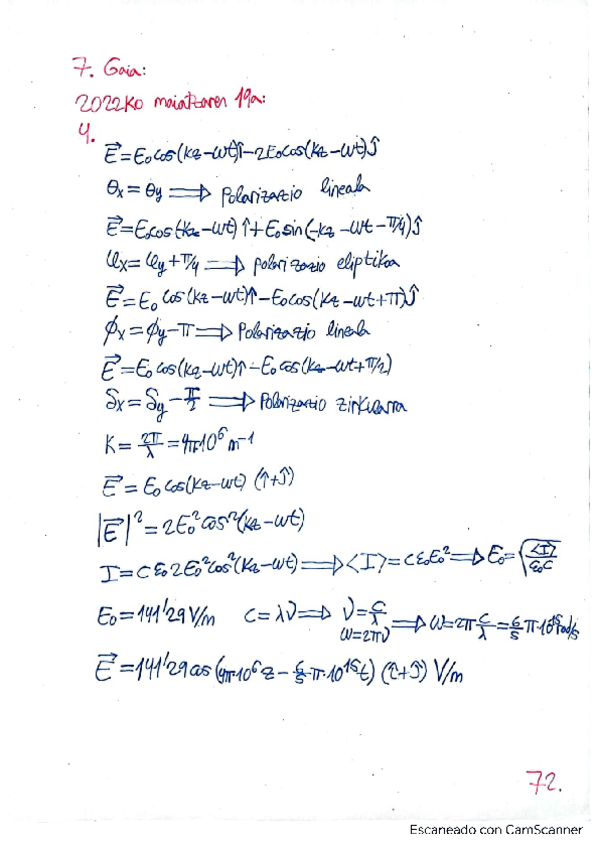 7. Gaia:
2022ko maiatzaren 19a:
4.
E⃗=E₀cos(kz-ωt)î-2E₀cos(kz-ωt)ĵ
θx=θy ⟹ Polarizazio lineala
E⃗=E₀cos(kz-ωt)î+E₀sin(-kz-ωt-π/4)ĵ
φx=φy+π/4 ⟹ polarizazio eliptikoa
E⃗=E₀cos(kz-ωt)î-E₀cos(kz-ωt+π)ĵ
ϕx=ϕy-π ⟹ Polarizazio lineala
E⃗=E₀cos(kz-ωt)î-E₀cos(kz-ωt+π/2)
δx=δy-π/2 ⟹ Polarizazio zirkularra
K=2π/λ=4π10⁶m⁻¹
E⃗=E₀cos(kz-ωt)(î+ĵ)
|E⃗|²=2E₀²cos²(kz-ωt)
I=cε₀2E₀²cos²(kz-ωt) ⟹ <I>=cε₀E₀² ⟹ E₀=√(<I>/ε₀c)
E₀=141'29V/m c=λν ⟹ ν=c/λ ω=2πν ⟹ ω=2πc/λ=6/5π·10¹⁵rad/s
E⃗=141'29cos(4π·10⁶z-6/5π·10¹⁵t)(î+ĵ)V/m
72.
Escaneado con CamScanner